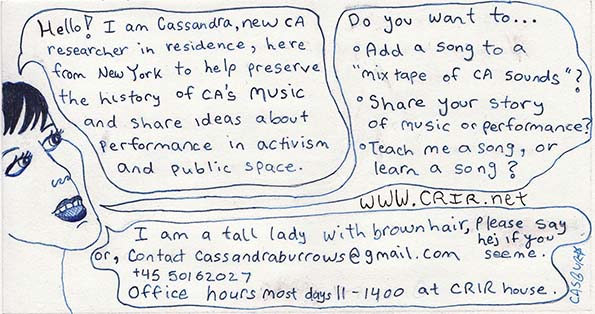 Hello! I am Cassandra, new CA
researcher in residence, here
from New York to help preserve
the history of CA's Music
and share ideas about
performance in activism
and public space.
Do you want to...
• Add a song to a
"mix tape of CA sounds"?
• Share your story
of music or performance?
• Teach me a song, or
learn a song?
WWW.CRIR.net
I am a tall lady with brown hair, Please say
hej if you
see me.
or, Contact cassandraburrows@gmail.com
+45 50162027
Office hours most days 11-1400 at CRIR house.
CASBURX